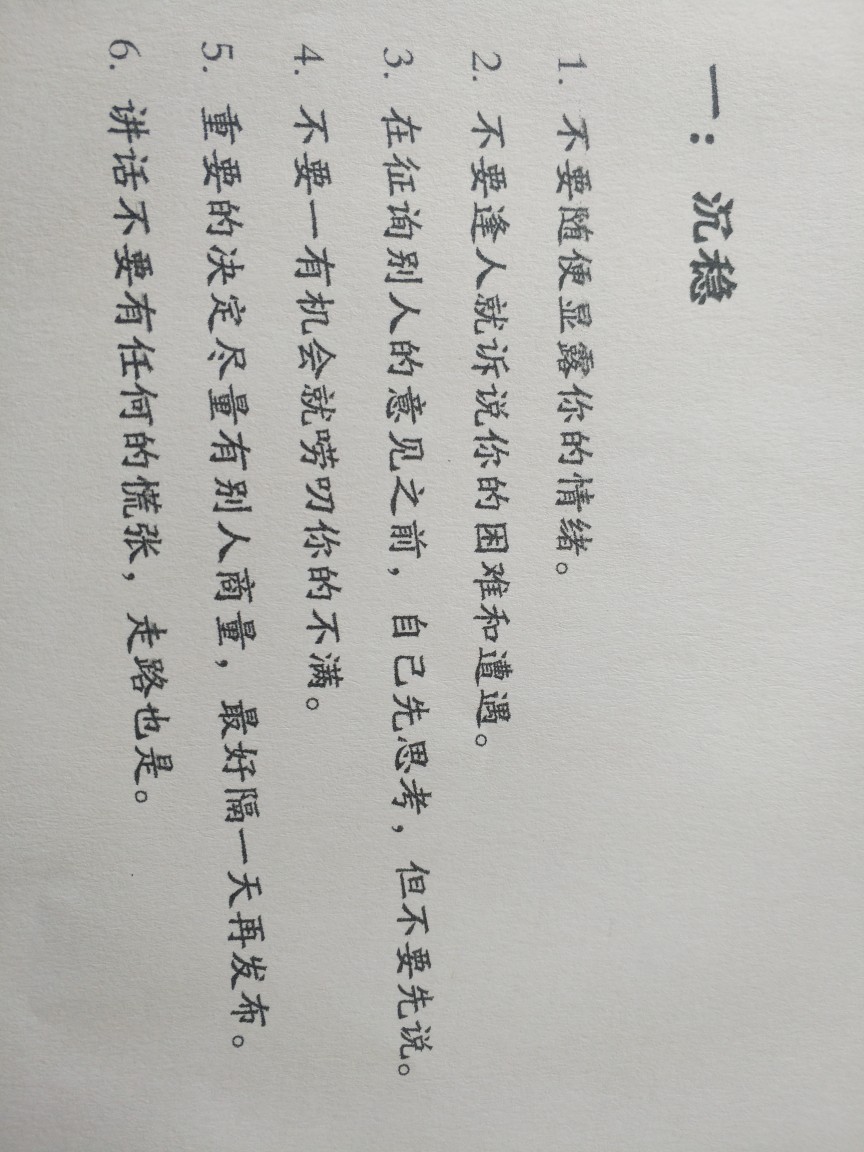 一：沉稳
1. 不要随便显露你的情绪。
2. 不要逢人就诉说你的困难和遭遇。
3. 在征询别人的意见之前，自己先思考，但不要先说。
4. 不要一有机会就唠叨你的不满。
5. 重要的决定尽量有别人商量，最好隔一天再发布。
6. 讲话不要有任何的慌张，走路也是。